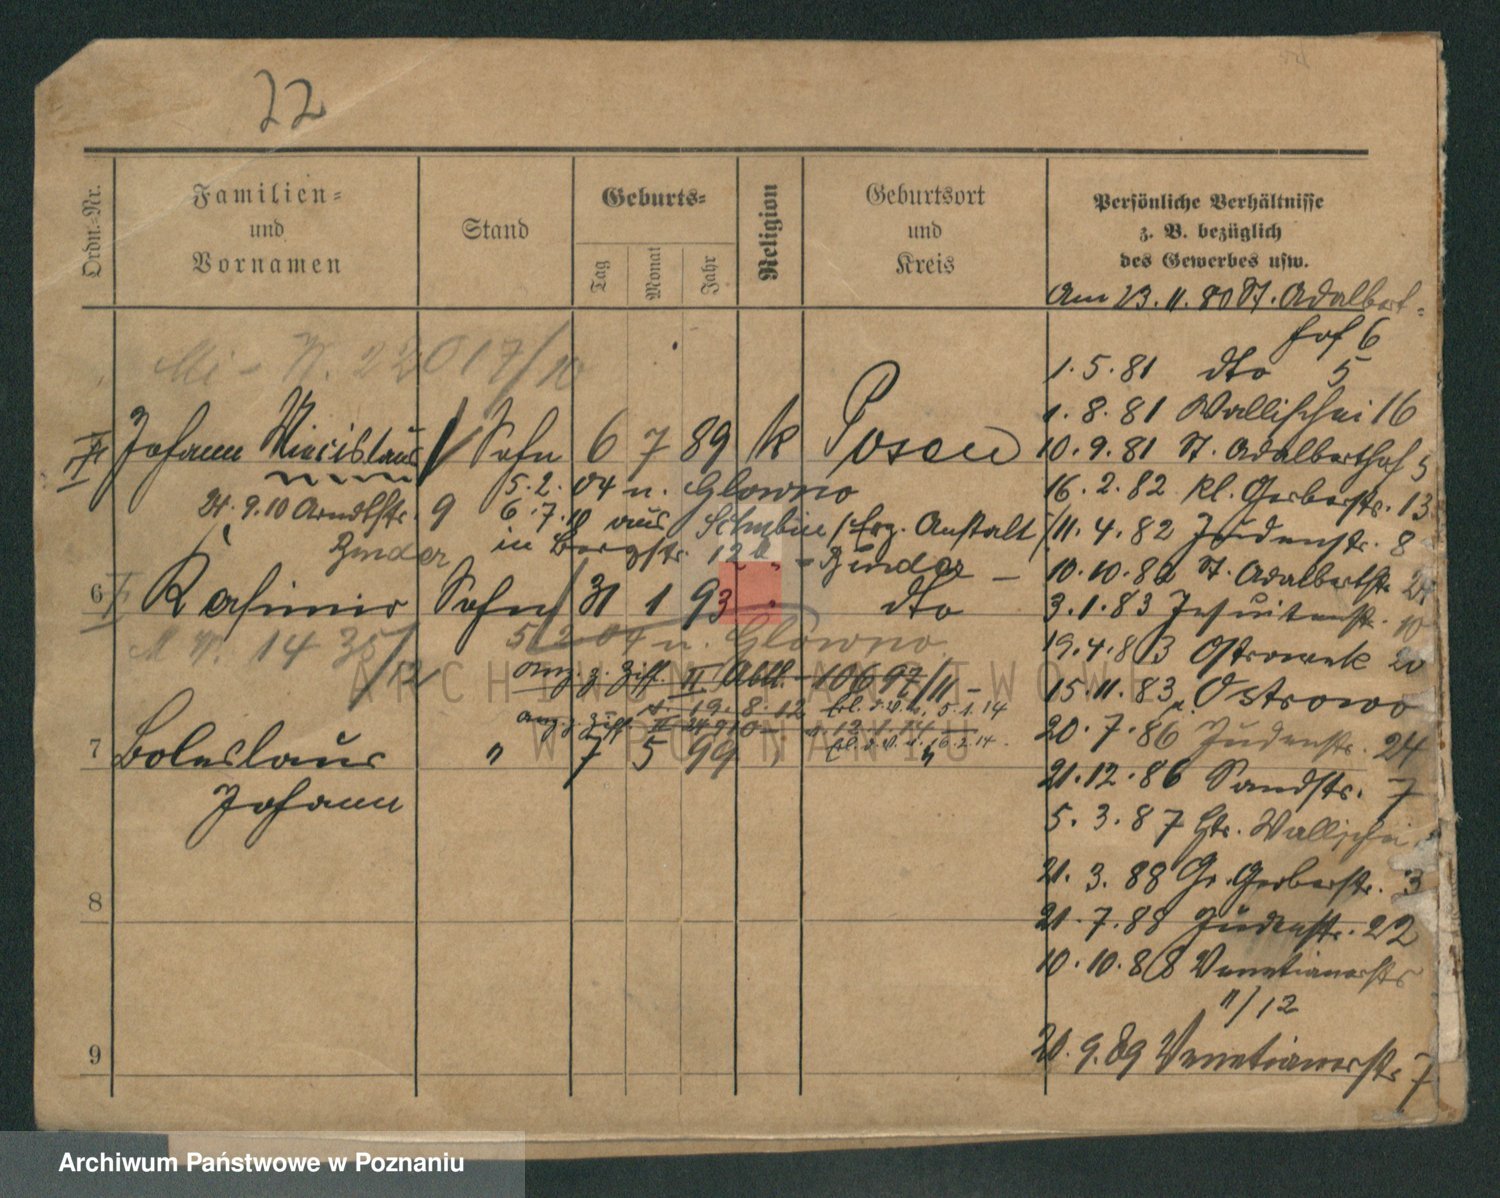 22
Ordn.-Nr.
Familien-
und
Vornamen
Stand
Geburts-
Tag
Monat
Jahr
Religion
Geburtsort
und
Kreis
Persönliche Verhältnisse
z. B. bezüglich
des Gewerbes usw.
Am 23.11.80 St. Adalbert-
hof 6
1.5.81 dto 5
1.8.81 Wallischei 16
10.9.81 St. Adalberthof 5
16.2.82 kl. Gerberstr. 13
11.4.82 Judenstr. 8
10.10.82 St. Adalbertstr. 24
3.1.83 Jesuitenstr. 10
19.4.83 Ostrowek 20
15.11.83 n. Ostrowo
20.7.86 Judenstr. 24
21.12.86 Sandstr. 7
5.3.87 Wallischei
21.3.88 Gr. Gerberstr. 3
21.7.88 Judenstr. 22
10.10.88 Venetianerstr
11/12
20.9.89 Venetianerstr 7
22017/10
Johann Miecislaus Sohn 6 7 89 k Posen
5.2.04 n. Glowno
24.9.10 Arndtstr. 9 6.7.10 aus Schubin / Erz. Anstalt /
in Bergstr. 12a - Zunder -
Zunder
6 Kasimir Sohn 31 1 93 " dto
5.2.04 n. Glowno
14 35/12
Ang. z. Ziff. II Abtl. - 10697/11 -
19.8.12 5.1.14
ang. z. Ziff
7 Boleslaus " 7 5 99 " "
Johann
8
9
ARCHIWUM PAŃSTWOWE
W POZNANIU
Archiwum Państwowe w Poznaniu